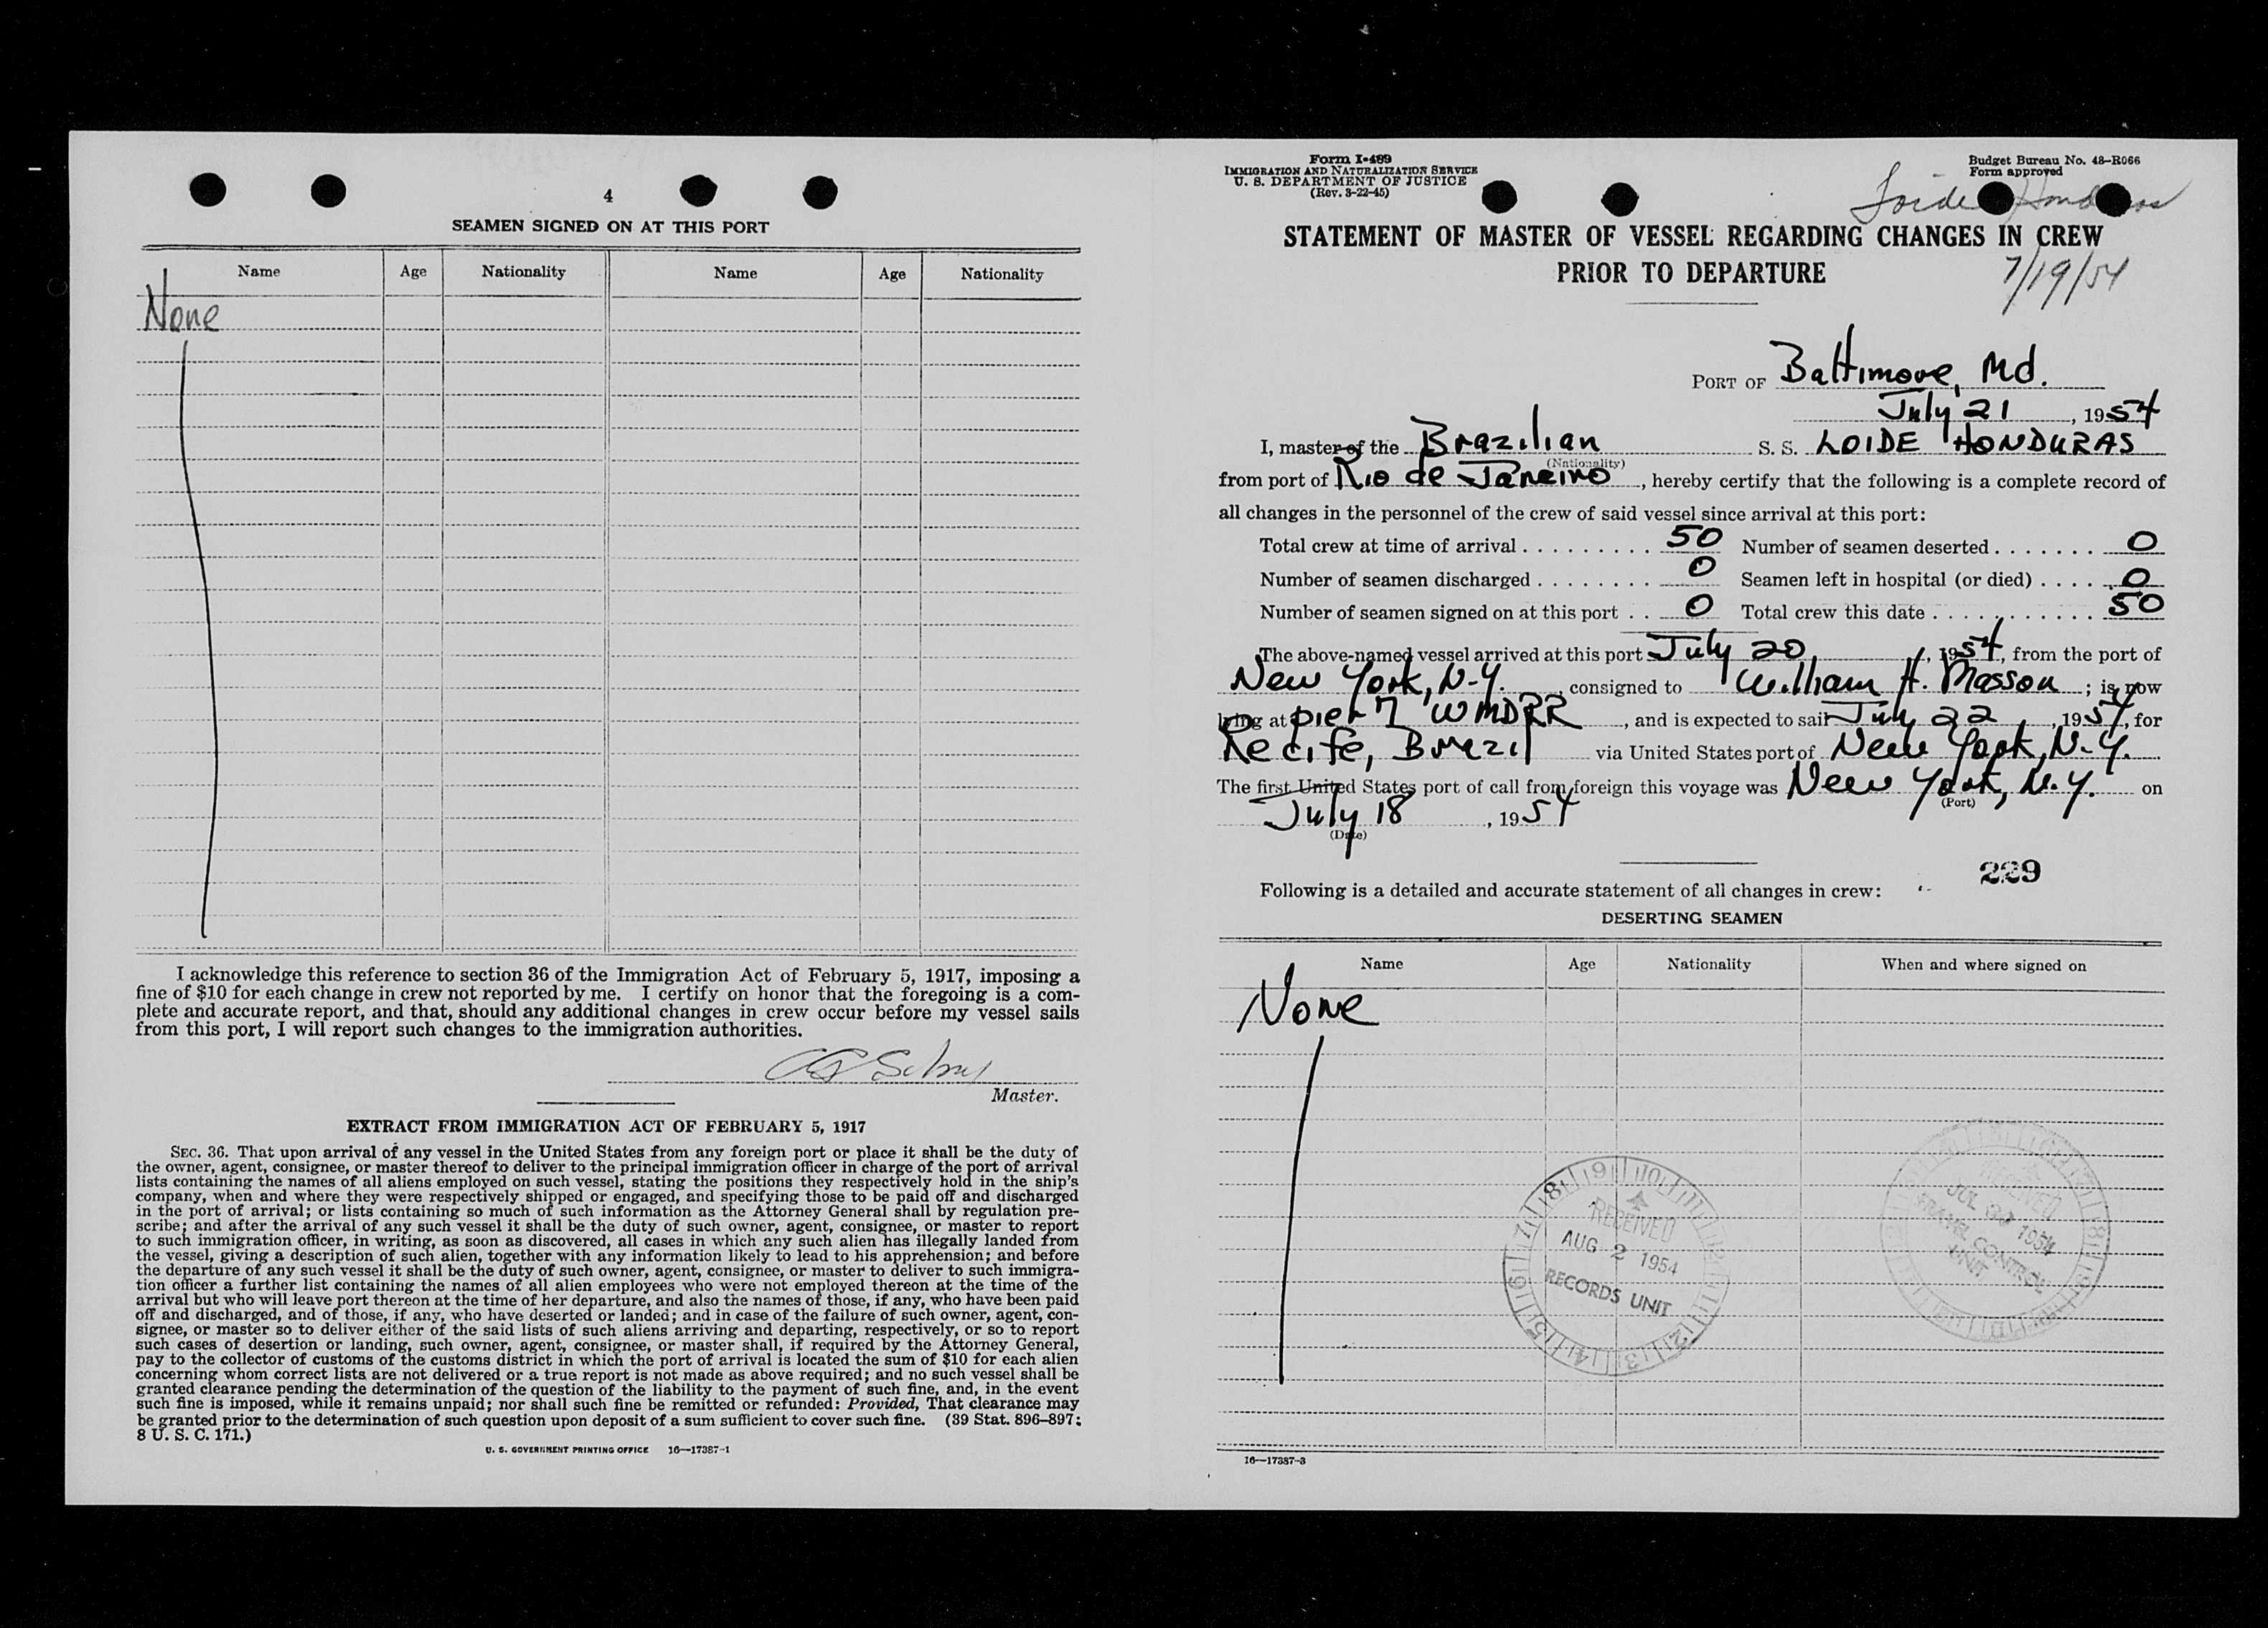 4
SEAMEN SIGNED ON AT THIS PORT
Name Age Nationality Name Age Nationality
None
I acknowledge this reference to section 36 of the Immigration Act of February 5, 1917, imposing a
fine of $10 for each change in crew not reported by me. I certify on honor that the foregoing is a com-
plete and accurate report, and that, should any additional changes in crew occur before my vessel sails
from this port, I will report such changes to the immigration authorities.
Master.
EXTRACT FROM IMMIGRATION ACT OF FEBRUARY 5, 1917
SEC. 36. That upon arrival of any vessel in the United States from any foreign port or place it shall be the duty of
the owner, agent, consignee, or master thereof to deliver to the principal immigration officer in charge of the port of arrival
lists containing the names of all aliens employed on such vessel, stating the positions they respectively hold in the ship's
company, when and where they were respectively shipped or engaged, and specifying those to be paid off and discharged
in the port of arrival; or lists containing so much of such information as the Attorney General shall by regulation pre-
scribe; and after the arrival of any such vessel it shall be the duty of such owner, agent, consignee, or master to report
to such immigration officer, in writing, as soon as discovered, all cases in which any such alien has illegally landed from
the vessel, giving a description of such alien, together with any information likely to lead to his apprehension; and before
the departure of any such vessel it shall be the duty of such owner, agent, consignee, or master to deliver to such immigra-
tion officer a further list containing the names of all alien employees who were not employed thereon at the time of the
arrival but who will leave port thereon at the time of her departure, and also the names of those, if any, who have been paid
off and discharged, and of those, if any, who have deserted or landed; and in case of the failure of such owner, agent, con-
signee, or master so to deliver either of the said lists of such aliens arriving and departing, respectively, or so to report
such cases of desertion or landing, such owner, agent, consignee, or master shall, if required by the Attorney General,
pay to the collector of customs of the customs district in which the port of arrival is located the sum of $10 for each alien
concerning whom correct lists are not delivered or a true report is not made as above required; and no such vessel shall be
granted clearance pending the determination of the question of the liability to the payment of such fine, and, in the event
such fine is imposed, while it remains unpaid; nor shall such fine be remitted or refunded: Provided, That clearance may
be granted prior to the determination of such question upon deposit of a sum sufficient to cover such fine. (39 Stat. 896–897;
8 U. S. C. 171.)
U. S. GOVERNMENT PRINTING OFFICE 16—17387-1
Form I-489
IMMIGRATION AND NATURALIZATION SERVICE
U. S. DEPARTMENT OF JUSTICE
(Rev. 3-22-45)
Budget Bureau No. 43–R066
Form approved
Loide Honduras
STATEMENT OF MASTER OF VESSEL REGARDING CHANGES IN CREW
PRIOR TO DEPARTURE
7/19/54
PORT OF Baltimore, Md.
July 21, 1954
I, master of the Brazilian S. S. LOIDE HONDURAS
(Nationality)
from port of Rio de Janeiro, hereby certify that the following is a complete record of
all changes in the personnel of the crew of said vessel since arrival at this port:
Total crew at time of arrival . . . . . . . . . 50 Number of seamen deserted . . . . . . . 0
Number of seamen discharged . . . . . . . . 0 Seamen left in hospital (or died) . . . . 0
Number of seamen signed on at this port . . 0 Total crew this date . . . . . . . . . . . 50
The above-named vessel arrived at this port July 20, 1954, from the port of
New York, N.Y., consigned to William H. Masson; is now
lying at pier 7 WMDRR, and is expected to sail July 22, 1954, for
Recife, Brazil via United States port of New York, N.Y.
The first United States port of call from foreign this voyage was New York, N.Y. on
(Port)
July 18, 1954
(Date)
229
Following is a detailed and accurate statement of all changes in crew:
DESERTING SEAMEN
Name Age Nationality When and where signed on
None
RECEIVED
AUG 2 1954
RECORDS UNIT
RECEIVED
JUL 1954
TRAVEL CONTROL
UNIT
16—17387-3